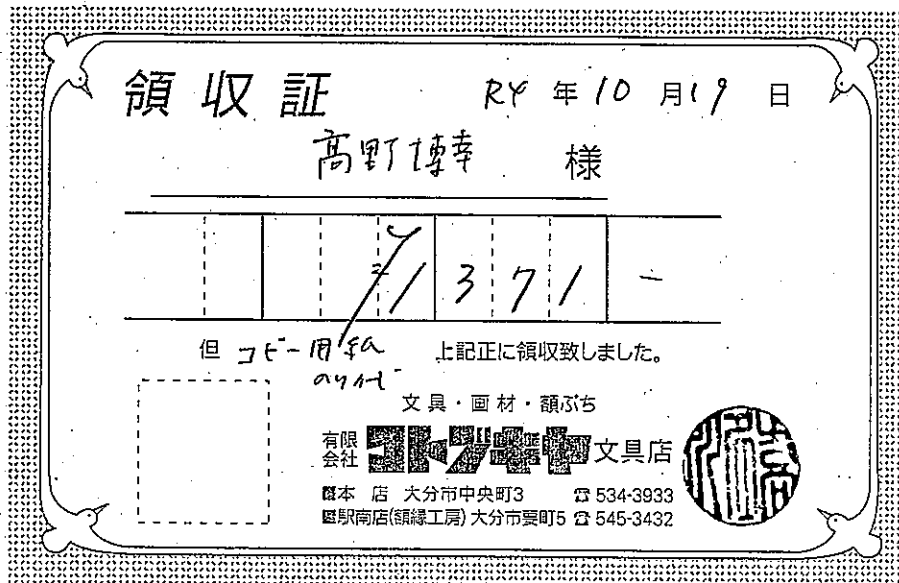 領収証 R4年10月19日
高野博幸 様
¥1371-
但 コピー用紙 上記正に領収致しました。
のり代
文具・画材・額ぶち
有限会社 コトブキヤ文具店
本店 大分市中央町3 ☎534-3933
駅南店(額縁工房) 大分市要町5 ☎545-3432